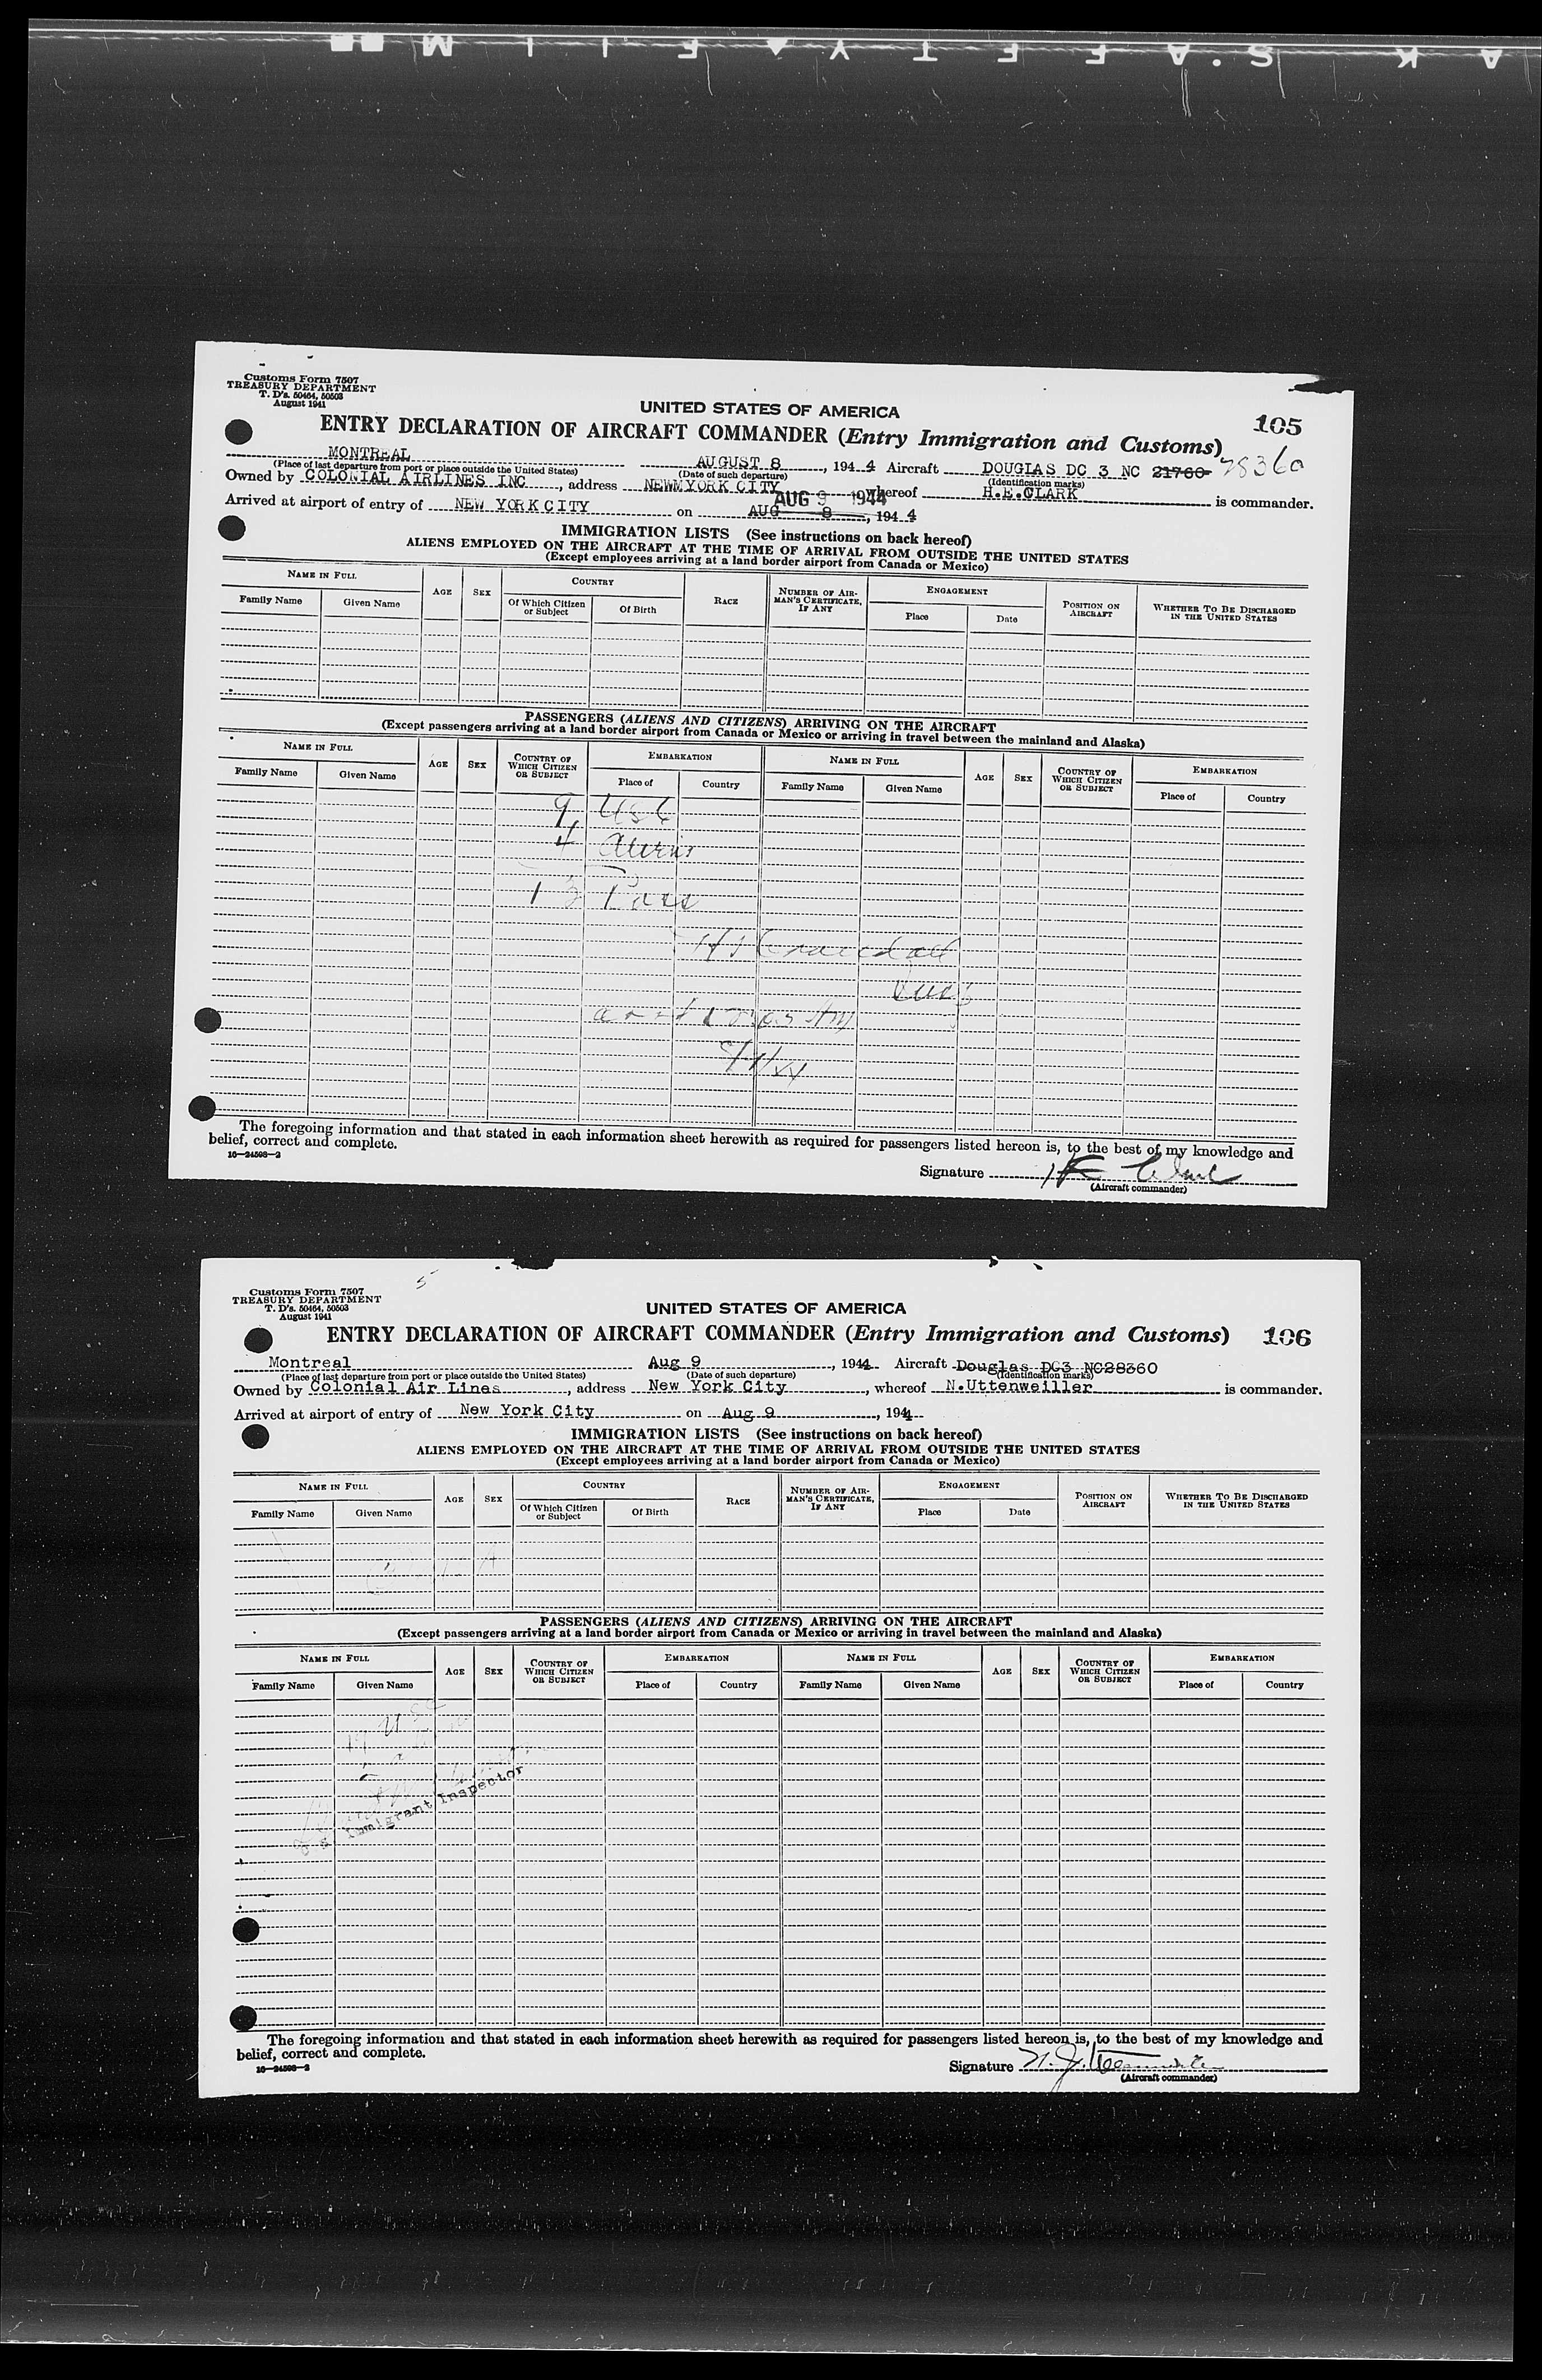 Customs Form 7507
TREASURY DEPARTMENT
T. D's. 50464, 50503
August 1941
UNITED STATES OF AMERICA
105
ENTRY DECLARATION OF AIRCRAFT COMMANDER (Entry Immigration and Customs)
MONTREAL AUGUST 8, 1944 Aircraft DOUGLAS DC 3 NC 21760 28360
(Place of last departure from port or place outside the United States) (Date of such departure) (Identification marks)
Owned by COLONIAL AIRLINES INC, address NEWMYORK CITY whereof H.E.CLARK is commander.
AUG 9 1944
Arrived at airport of entry of NEW YORK CITY on AUG 8, 1944
IMMIGRATION LISTS (See instructions on back hereof)
ALIENS EMPLOYED ON THE AIRCRAFT AT THE TIME OF ARRIVAL FROM OUTSIDE THE UNITED STATES
(Except employees arriving at a land border airport from Canada or Mexico)
NAME IN FULL AGE SEX COUNTRY RACE NUMBER OF AIRMAN'S CERTIFICATE, IF ANY ENGAGEMENT POSITION ON AIRCRAFT WHETHER TO BE DISCHARGED IN THE UNITED STATES
Family Name Given Name Of Which Citizen or Subject Of Birth Place Date
PASSENGERS (ALIENS AND CITIZENS) ARRIVING ON THE AIRCRAFT
(Except passengers arriving at a land border airport from Canada or Mexico or arriving in travel between the mainland and Alaska)
NAME IN FULL AGE SEX COUNTRY OF WHICH CITIZEN OR SUBJECT EMBARKATION NAME IN FULL AGE SEX COUNTRY OF WHICH CITIZEN OR SUBJECT EMBARKATION
Family Name Given Name Place of Country Family Name Given Name Place of Country
9 USC
4 Aliens
13 Pass
The foregoing information and that stated in each information sheet herewith as required for passengers listed hereon is, to the best of my knowledge and
belief, correct and complete.
16—24598—2
Signature H E Clark
(Aircraft commander)
5
Customs Form 7507
TREASURY DEPARTMENT
T. D's. 50464, 50503
August 1941
UNITED STATES OF AMERICA
ENTRY DECLARATION OF AIRCRAFT COMMANDER (Entry Immigration and Customs) 106
Montreal Aug 9, 1944 Aircraft Douglas DC3 NC28360
(Place of last departure from port or place outside the United States) (Date of such departure) (Identification marks)
Owned by Colonial Air Lines, address New York City, whereof N.Uttenweiller is commander.
Arrived at airport of entry of New York City on Aug 9, 1944
IMMIGRATION LISTS (See instructions on back hereof)
ALIENS EMPLOYED ON THE AIRCRAFT AT THE TIME OF ARRIVAL FROM OUTSIDE THE UNITED STATES
(Except employees arriving at a land border airport from Canada or Mexico)
NAME IN FULL AGE SEX COUNTRY RACE NUMBER OF AIRMAN'S CERTIFICATE, IF ANY ENGAGEMENT POSITION ON AIRCRAFT WHETHER TO BE DISCHARGED IN THE UNITED STATES
Family Name Given Name Of Which Citizen or Subject Of Birth Place Date
PASSENGERS (ALIENS AND CITIZENS) ARRIVING ON THE AIRCRAFT
(Except passengers arriving at a land border airport from Canada or Mexico or arriving in travel between the mainland and Alaska)
NAME IN FULL AGE SEX COUNTRY OF WHICH CITIZEN OR SUBJECT EMBARKATION NAME IN FULL AGE SEX COUNTRY OF WHICH CITIZEN OR SUBJECT EMBARKATION
Family Name Given Name Place of Country Family Name Given Name Place of Country
Immigrant Inspector
The foregoing information and that stated in each information sheet herewith as required for passengers listed hereon is, to the best of my knowledge and
belief, correct and complete.
16—24598—2
Signature
(Aircraft commander)